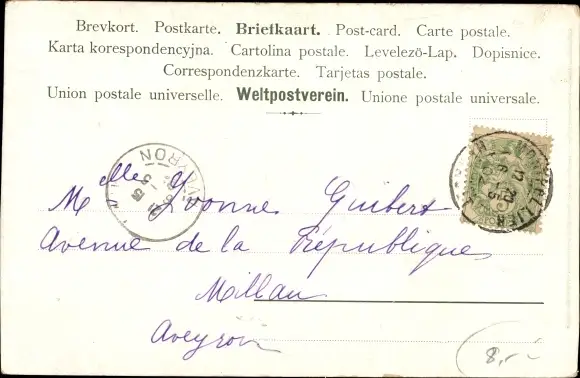 Brevkort. Postkarte. Briefkaart. Post-card. Carte postale.
Karta korespondencyjna. Cartolina postale. Levelezö-Lap. Dopisnice.
Correspondenzkarte. Tarjetas postale.
Union postale universelle. Weltpostverein. Unione postale universale.
AVEYRON
MONTPELLIER
Mlle Yvonne Guibert
Avenue de la République
Millau
Aveyron
8,-